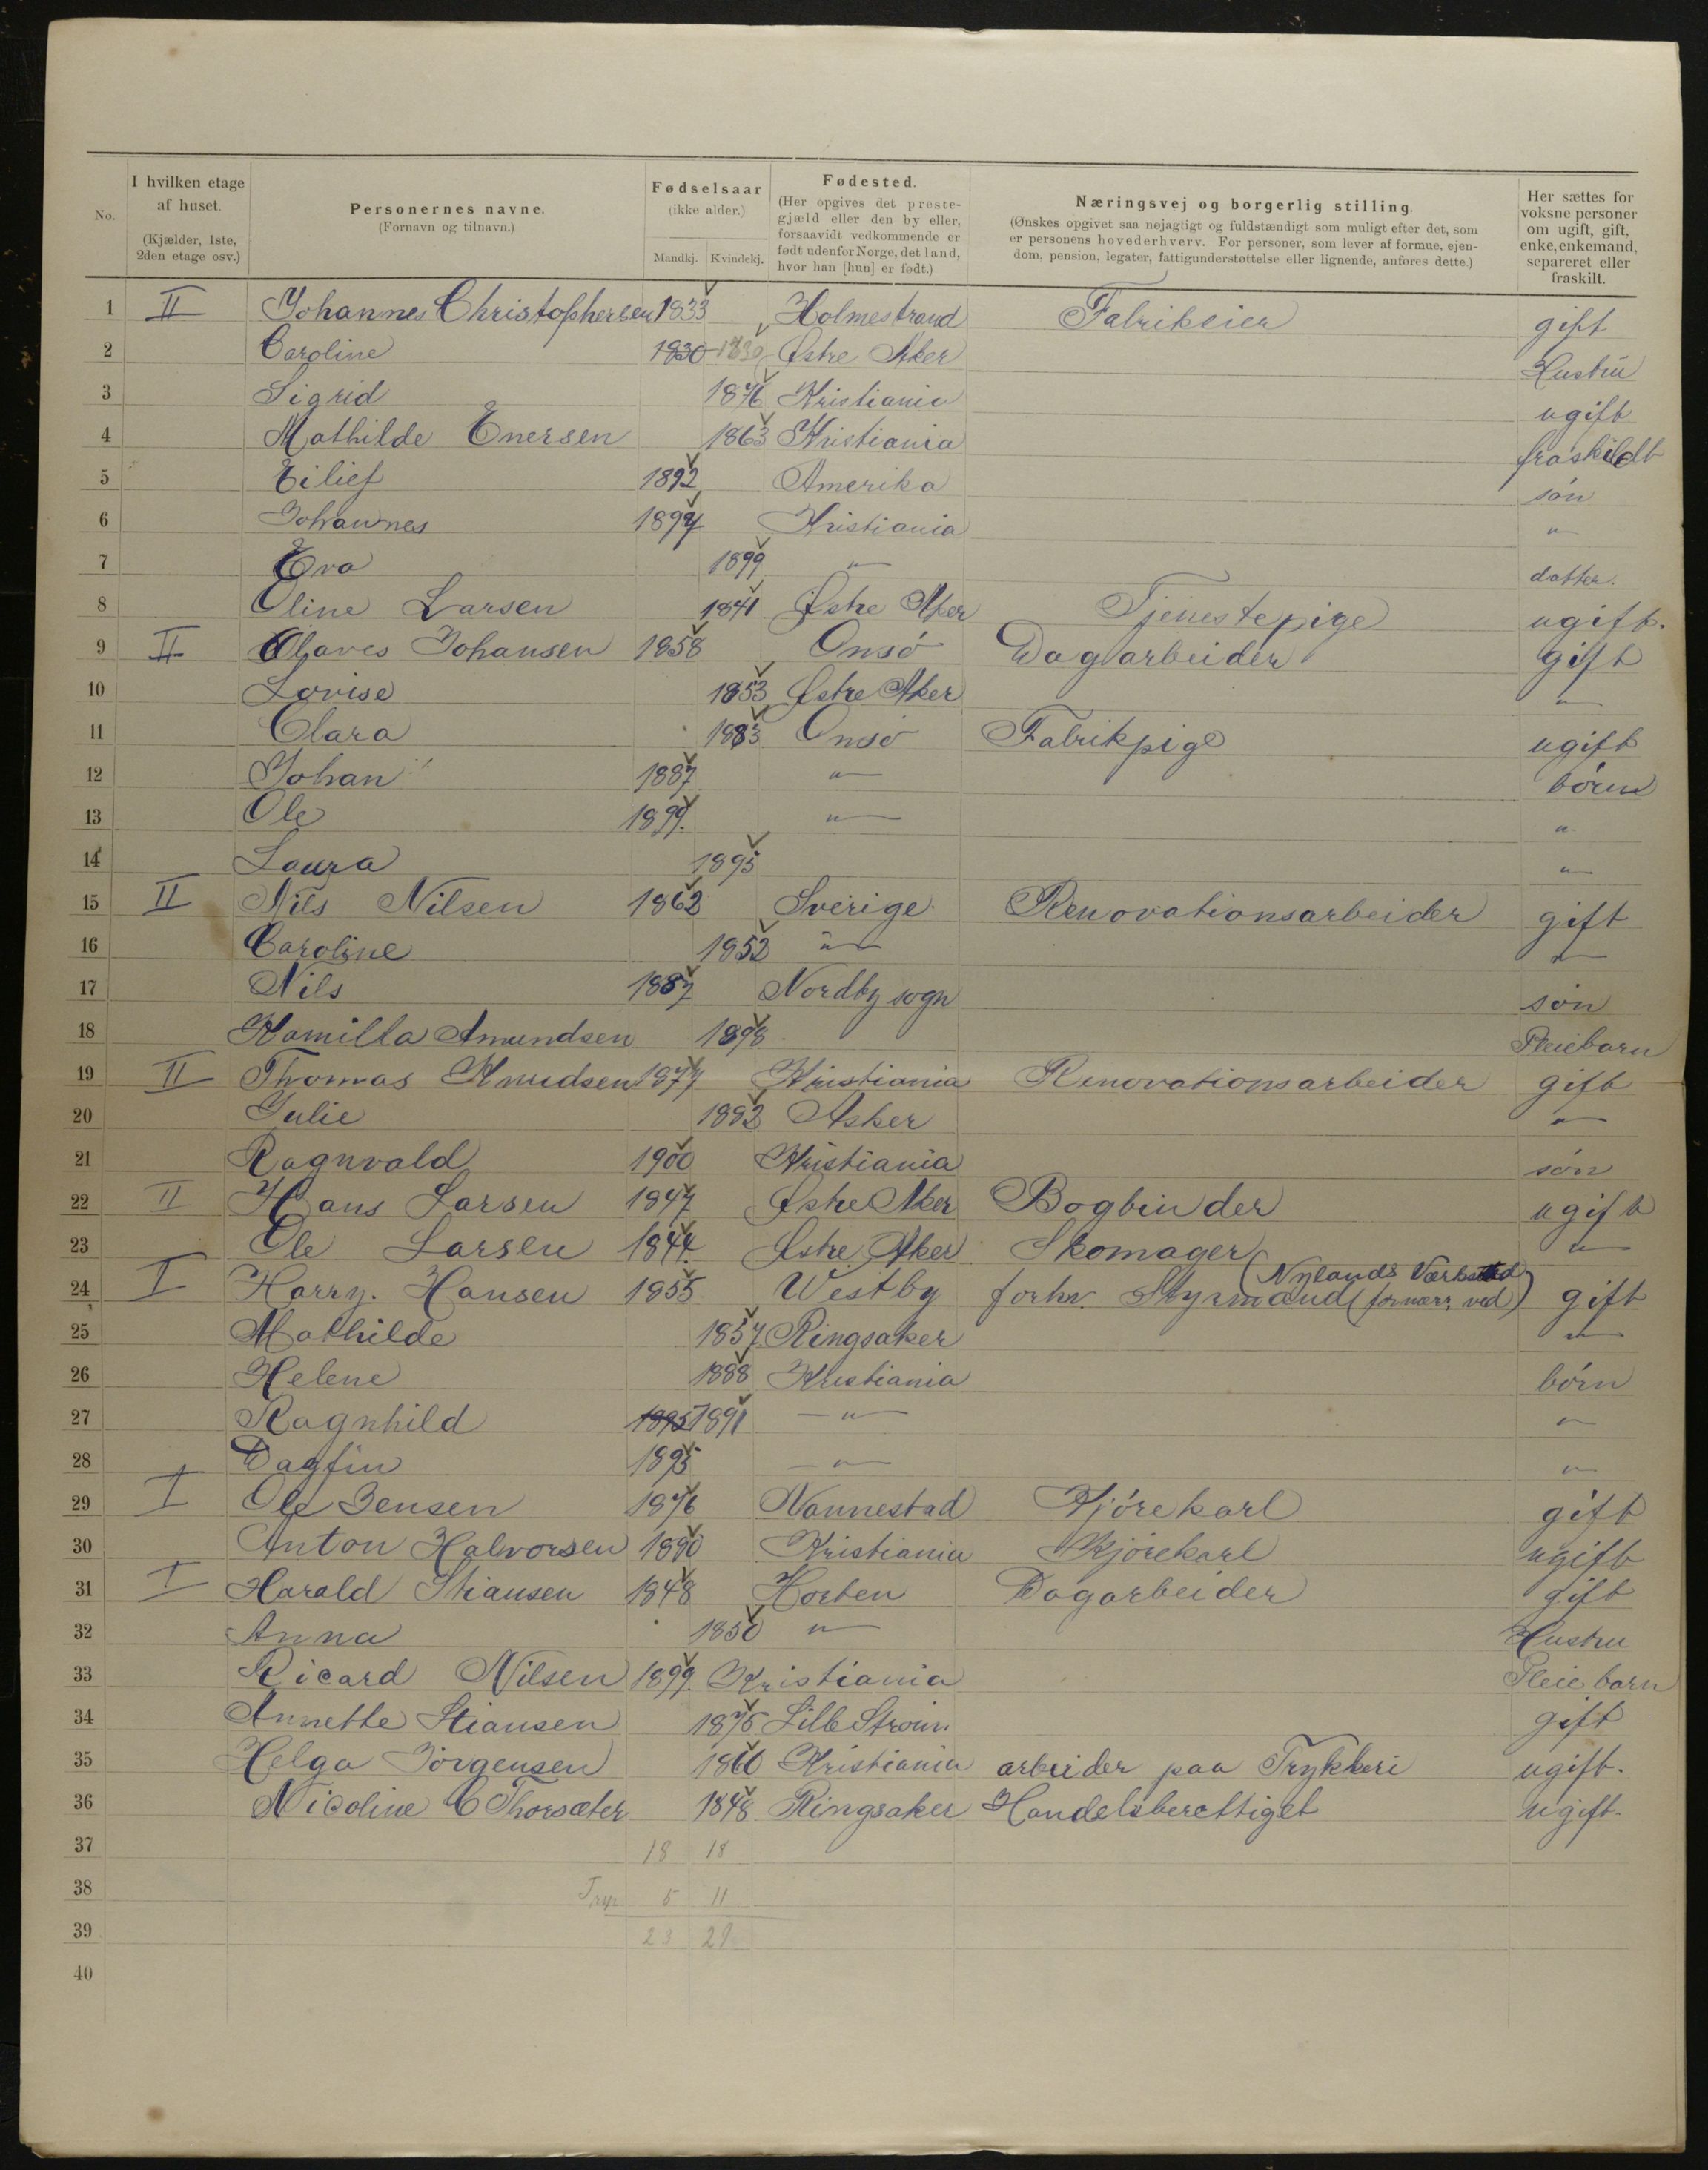 No.
I hvilken etage af huset. (Kjælder, 1ste, 2den etage osv.)
Personernes navne. (Fornavn og tilnavn.)
Fødselsaar (ikke alder.) Mandkj. Kvindekj.
Fødested. (Her opgives det prestegjæld eller den by eller, forsaavidt vedkommende er født udenfor Norge, det land, hvor han [hun] er født.)
Næringsvej og borgerlig stilling. (Ønskes opgivet saa nøjagtigt og fuldstændigt som muligt efter det, som er personens hovederhverv. For personer, som lever af formue, ejendom, pension, legater, fattigunderstøttelse eller lignende, anføres dette.)
Her sættes for voksne personer om ugift, gift, enke, enkemand, separeret eller fraskilt.
1 II Johannes Christophersen 1833 Holmestrand Fabrikeier gift
2 Caroline 1830 1830 Østre Aker Hustru
3 Sigrid 1876 Kristiania ugift
4 Mathilde Enersen 1863 Kristiania fraskildt
5 Eilief 1892 Amerika søn
6 Johannes 1897 Kristiania "
7 Eva 1899 " datter.
8 Oline Larsen 1841 Østre Aker Tjenestepige ugift.
9 II Olaves Johansen 1858 Onsö Dagarbeider gift
10 Lovise 1853 Østre Aker "
11 Clara 1883 Onsö Fabrikpige ugift
12 Johan 1887 " börn
13 Ole 1899. " "
14 Laura 1895 "
15 II Nils Nilsen 1862 Sverige Renovationsarbeider gift
16 Caroline 1852 " "
17 Nils 1887 Nordby sogn søn
18 Kamilla Amundsen 1898 Pleiebarn
19 II Thomas Knudsen 1877 Kristiania Renovationsarbeider gift
20 Julie 1882 Asker "
21 Ragnvald 1900 Kristiania søn
22 II Hans Larsen 1847 Østre Aker Bogbinder ugift
23 Ole Larsen 1844. Østre Aker Skomager "
24 I Harry. Hansen 1855 Westby forhv. Styrmand (Nylands Værksted fornærv. ved) gift
25 Mathilde 1857 Ringsaker "
26 Helene 1888 Kristiania börn
27 Ragnhild 1895 1891 " "
28 Dagfin 1895 " "
29 I Ole Jensen 1876 Nannestad Kjörekarl gift
30 Anton Halvorsen 1880 Kristiania Kjörekarl ugift
31 I Harald Stiansen 1848 Horten Dagarbeider gift
32 Anna 1850 " Hustru
33 Ricard Nilsen 1899. Kristiania Pleiebarn
34 Annette Stiansen 1875 Lille Ström. gift
35 Helga Jörgensen 1860 Kristiania arbeider paa Trykkeri ugift.
36 Nicoline C Thorsæter 1848 Ringsaker Handelsberettiget ugift.
37 18 18
38 5 11
39 23 29
40